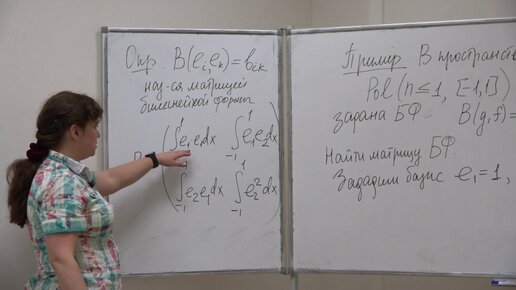 Опр. B(e_i, e_k) = b_ik
наз-ая матрицей
билинейной формы
∫_{-1}^{1} e_1 e_1 dx ∫_{-1}^{1} e_1 e_2 dx
∫_{-1}^{1} e_2 e_1 dx ∫_{-1}^{1} e_2^2 dx
Пример В пространств
Pol (n ≤ 1, [-1,1])
задана БФ: B(g,f) =
Найти матрицу БФ.
Зададим базис e_1 = 1,